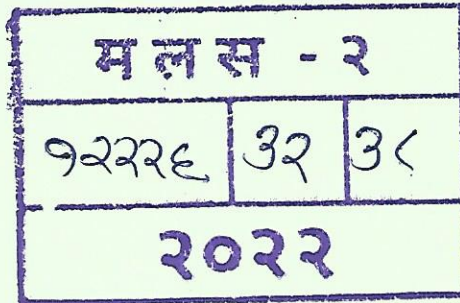 म ल स - २
१२२२६ ३२ ३८
२०२२